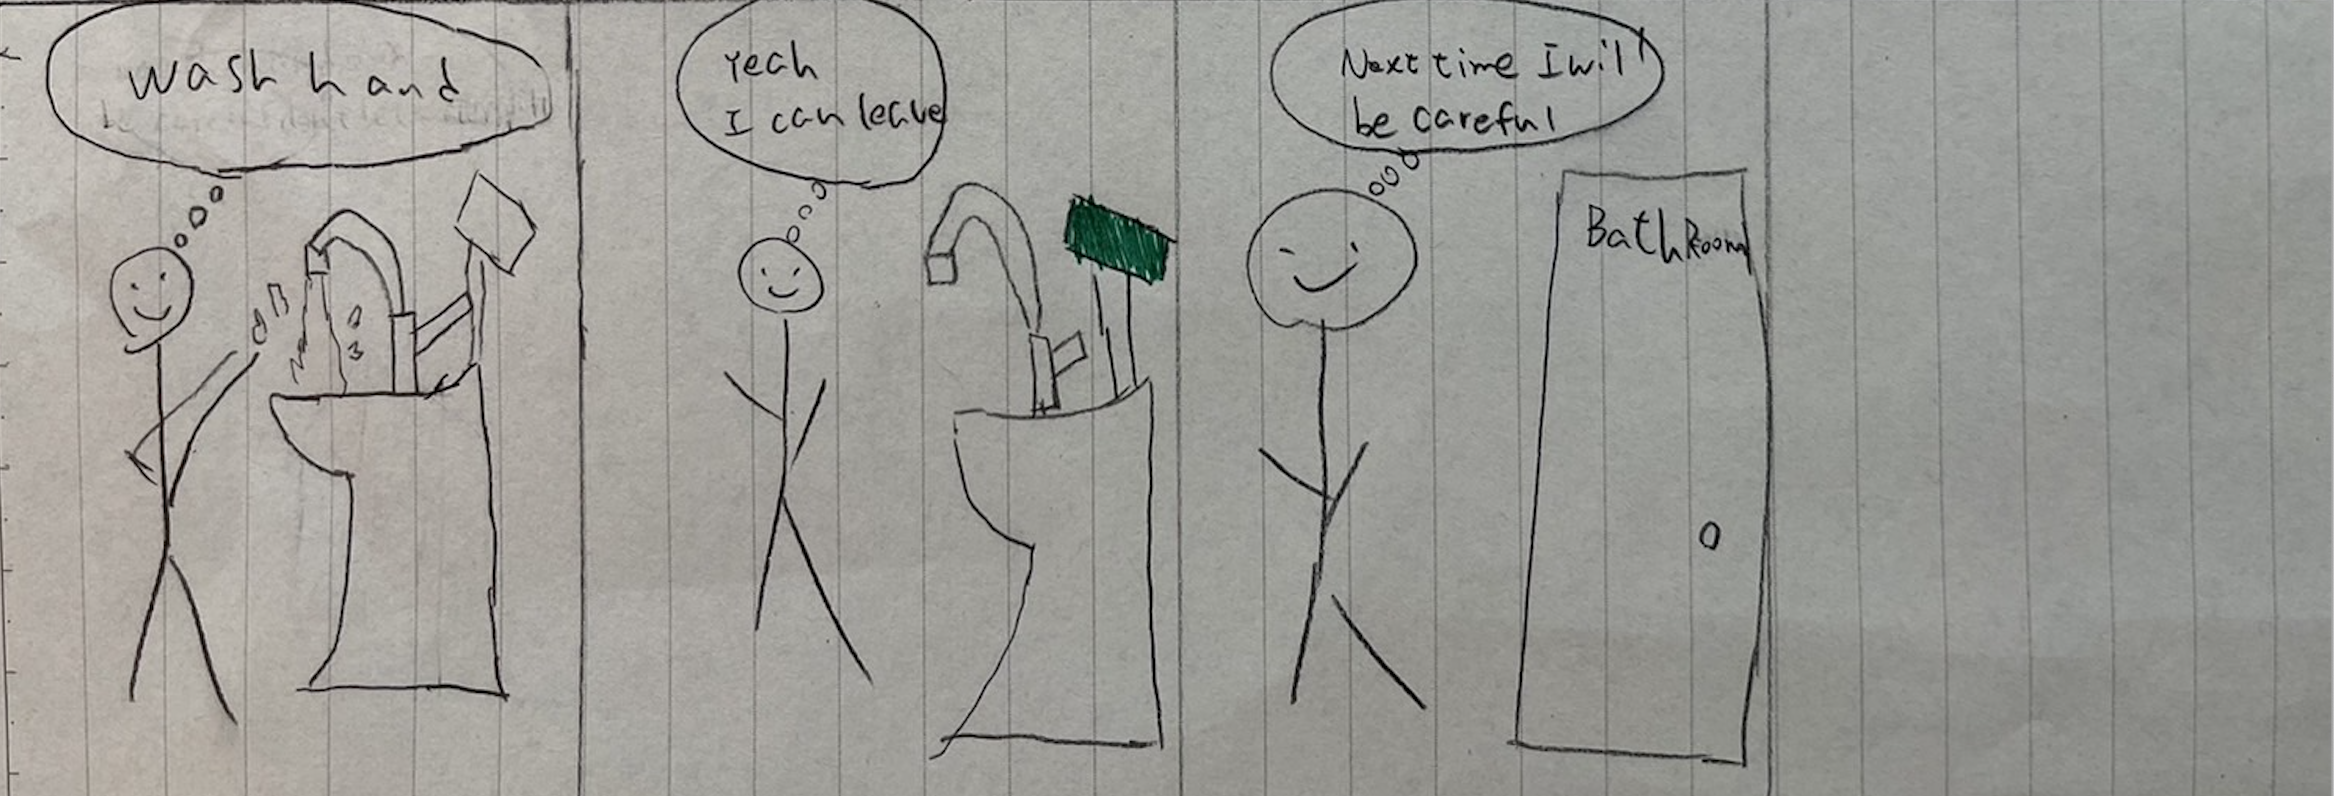 wash hand
Yeah
I can leave
Next time I will
be careful
BathRoom